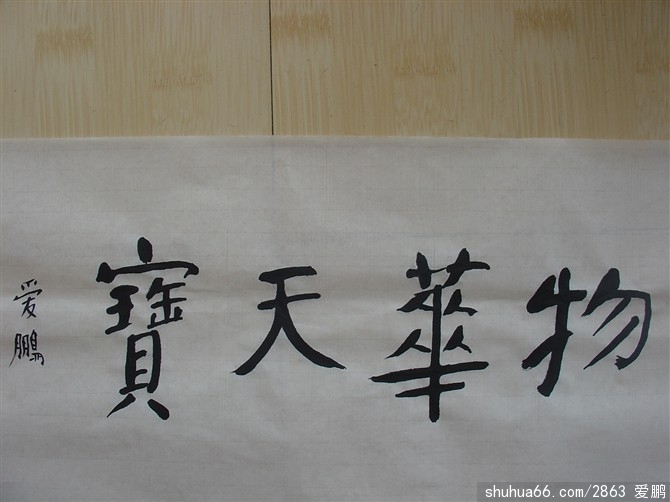 物華天寶
爱鵬
shuhua66.com/2863 爱鹏